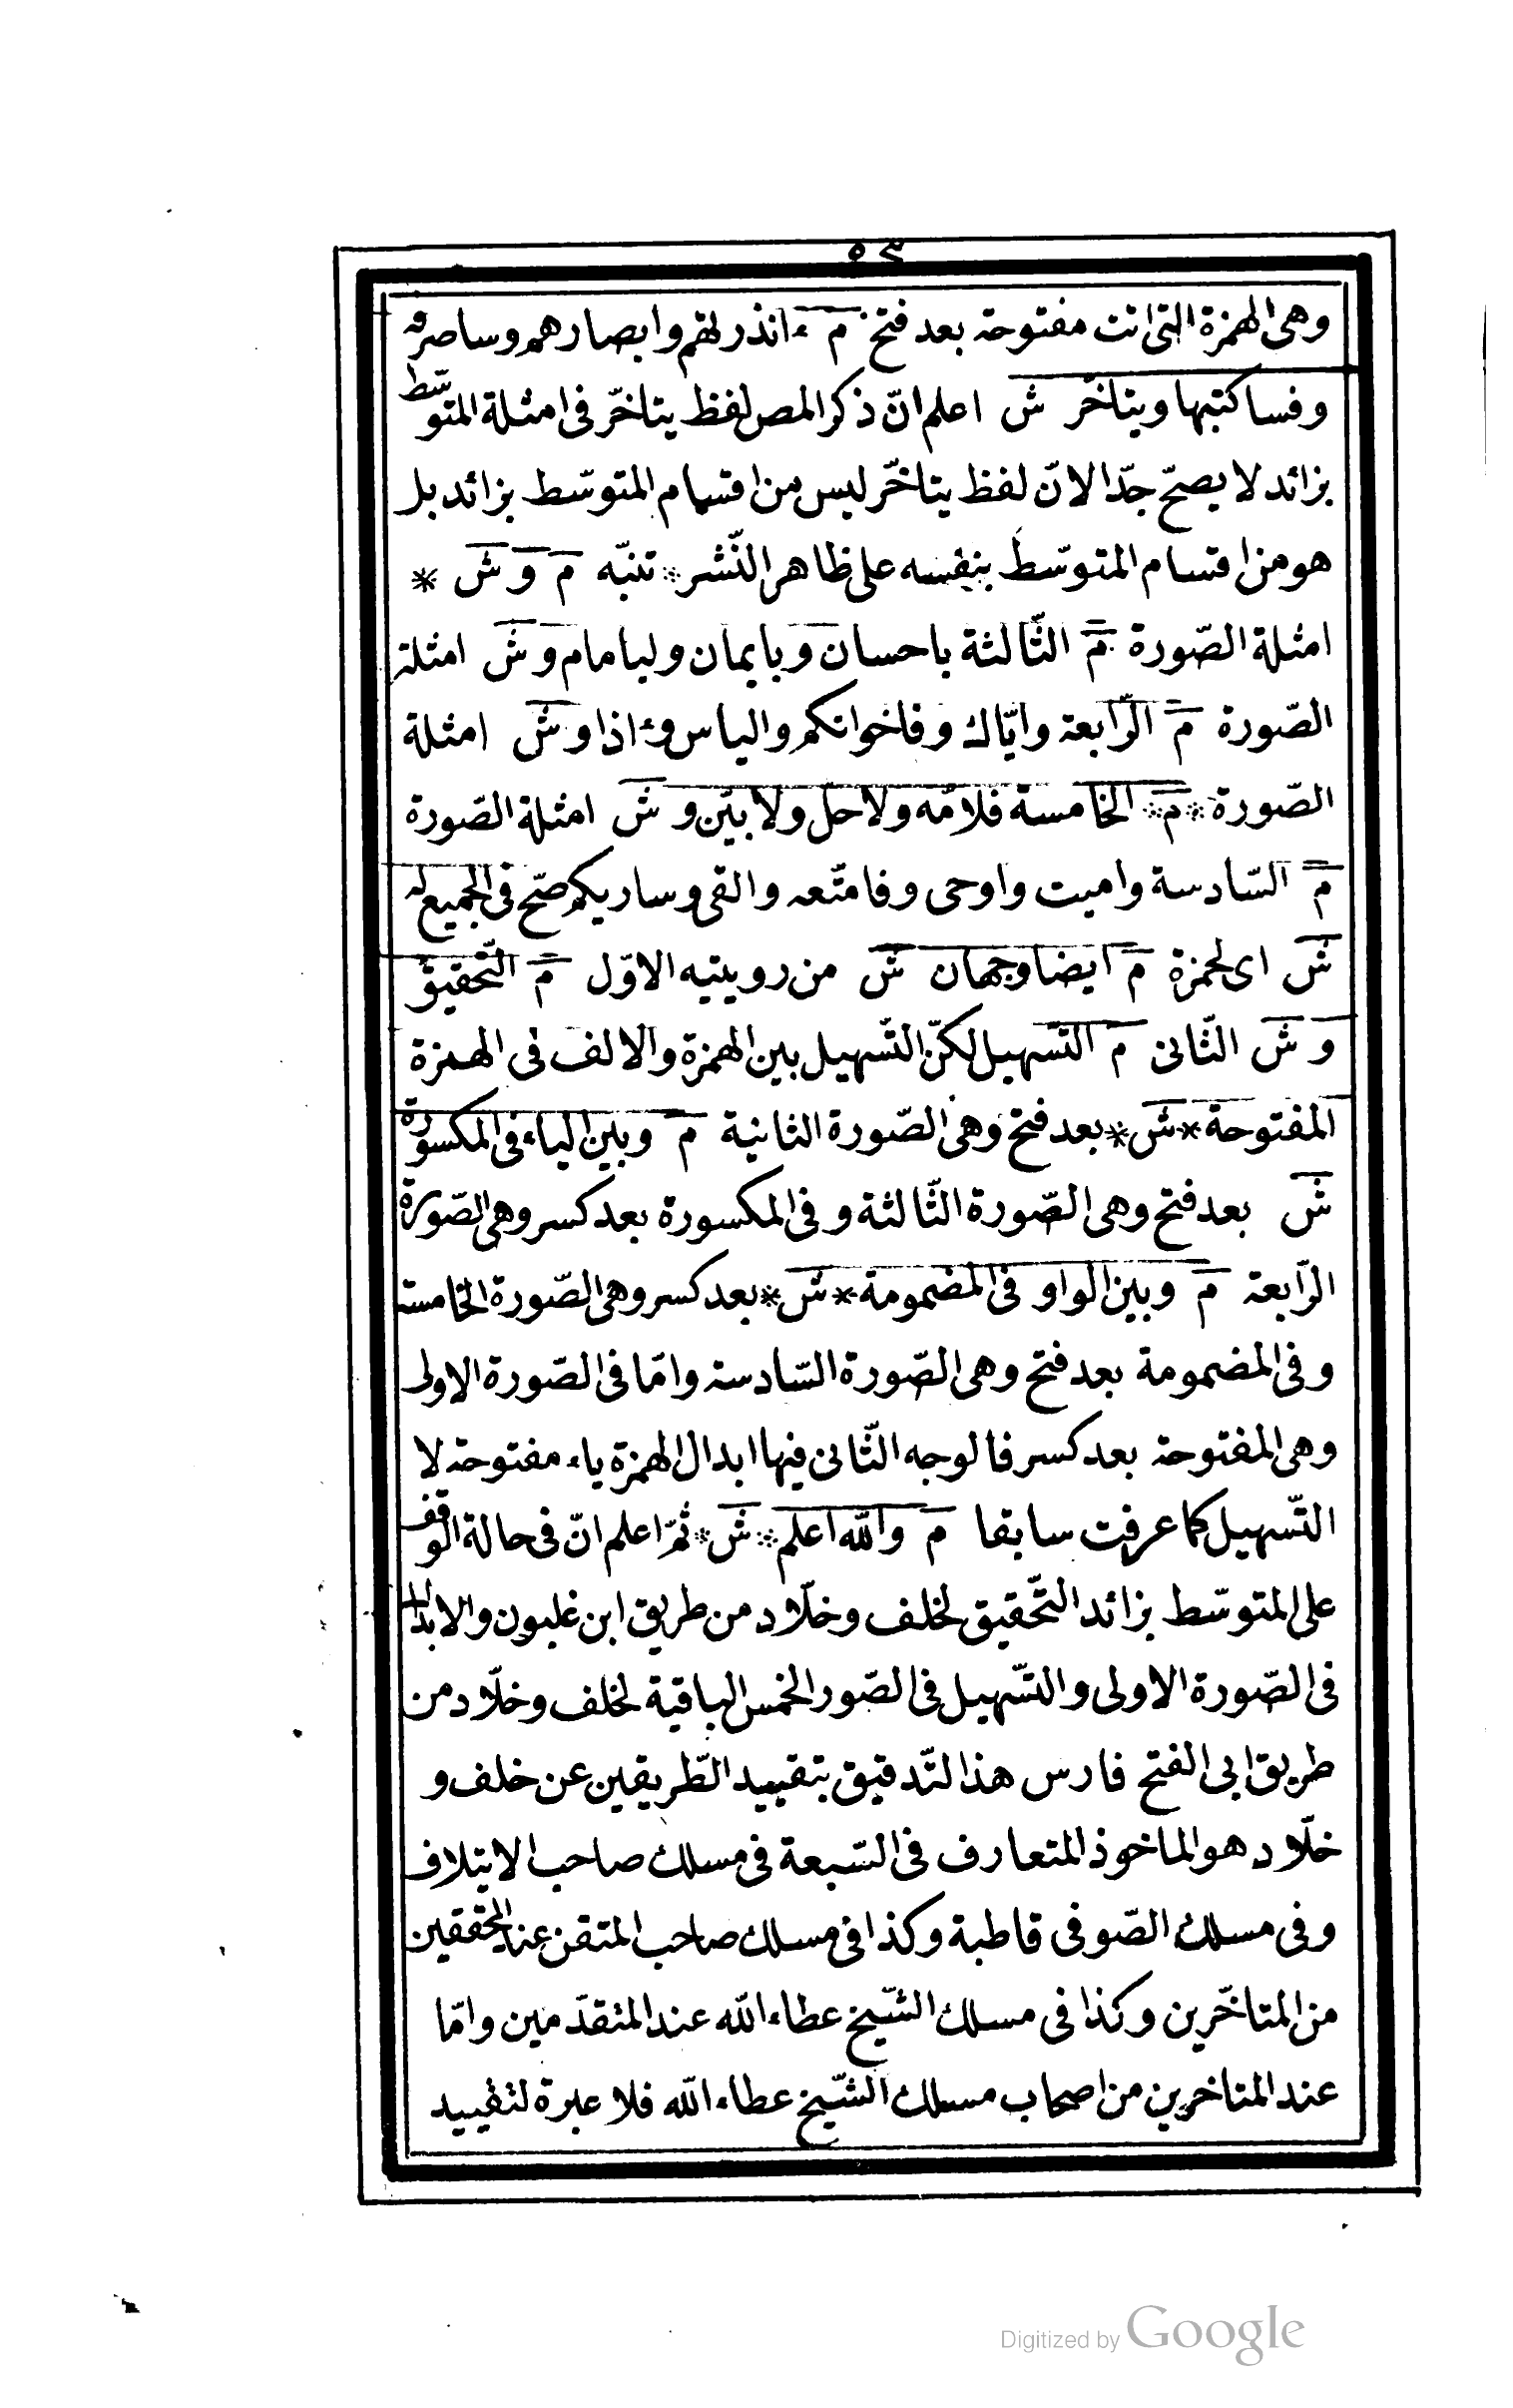 ٥٣
وهى الهمزة التى اتت مفتوحة بعد فتح م ءانذرتهم وابصارهم وساصرف
وفساكتبها ويتاخّر ش اعلم انّ ذكر المص لفظ يتاخّر فى امثلة المتوسّط
بزائد لا يصحّ جدّا لانّ لفظ يتاخّر ليس من اقسام المتوسّط بزائد بل
هو من اقسام المتوسّط بنفسه على ظاهر النّشر تنبّه م و ش *
امثلة الصّورة م الثّالثة باحسان وبايمان ولبامام و ش امثلة
الصّورة م الرّابعة وايّاك وفاخوانكم والياس وءاذا و ش امثلة
الصّورة م الخامسة فلامّه ولاحلّ ولابيّن و ش امثلة الصّورة
م السّادسة واميت واوحى وفامتّعه والقى وساريكم صّح فى الجميع له
ش اى لحمزة م ايضا وجهان ش من روييتيه الاوّل م التّحقيق
و ش الثّانى م التّسهيل لكنّ التّسهيل بين الهمزة والالف فى الهمزة
المفتوحة * ش * بعد فتح وهى الصّورة الثانية م وبين الياء فى المكسورة
ش بعد فتح وهى الصّورة الثّالثة وفى المكسورة بعد كسر وهى الصّورة
الرّابعة م وبين الواو فى المضمومة * ش * بعد كسر وهى الصّورة الخامسة
وفى المضمومة بعد فتح وهى الصّورة السّادسة وامّا فى الصّورة الاولى
وهى المفتوحة بعد كسر فالوجه الثّانى فيها ابدال الهمزة ياء مفتوحة لا
التّسهيل كما عرفت سابقا م واللّه اعلم ش ثمّ اعلم انّ فى حالة الوقف
على المتوسّط بزائد التّحقيق لخلف وخلّاد من طريق ابن غلبون والابدال
فى الصّورة الاولى والتّسهيل فى الصّور الخمس الباقية لخلف وخلّاد من
طريق ابى الفتح فارس هذا التّدقيق بتقييد الطّريقين عن خلف و
خلّاد هو الماخوذ المتعارف فى السّبعة فى مسلك صاحب الايتلاف
وفى مسلك الصّوفى قاطبة وكذا فى مسلك صاحب المتقن عند المحقّقين
من المتاخّرين وكذا فى مسلك الشّيخ عطاء اللّه عند المتقدّمين وامّا
عند المتاخرين من اصحاب مسلك الشّيخ عطاء اللّه فلا عبرة لتقييد
Digitized by Google